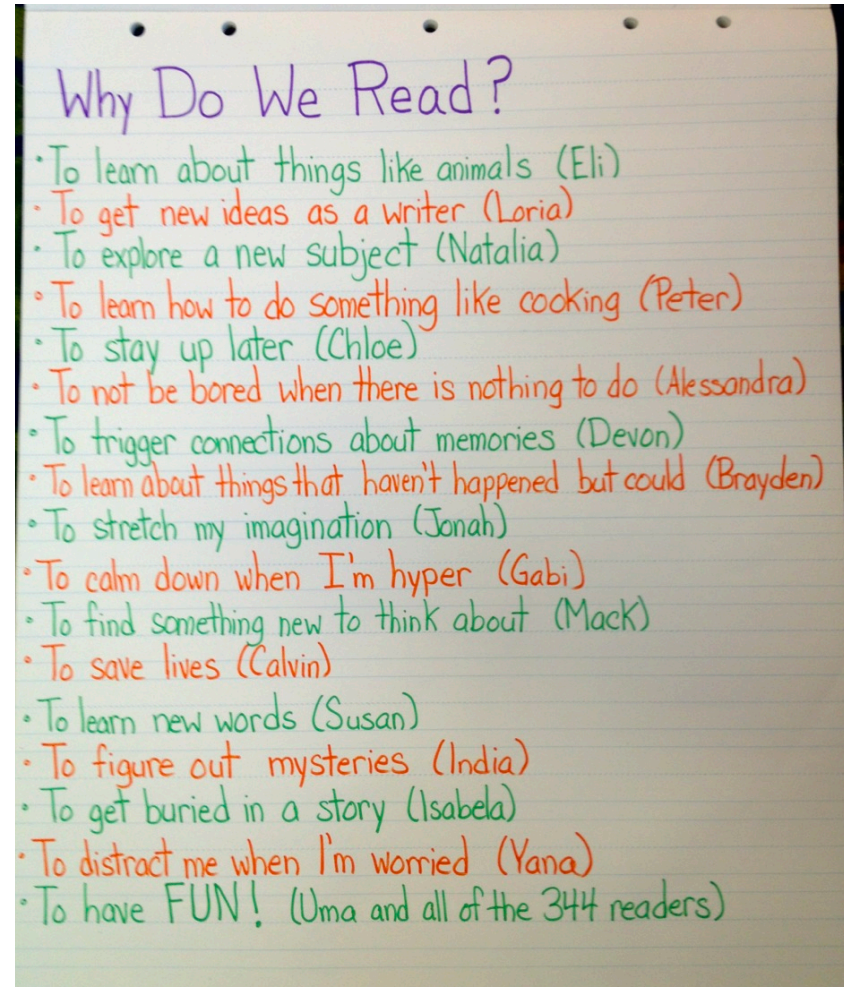 Why Do We Read?
· To learn about things like animals (Eli)
· To get new ideas as a writer (Loria)
· To explore a new subject (Natalia)
· To learn how to do something like cooking (Peter)
· To stay up later (Chloe)
· To not be bored when there is nothing to do (Alessandra)
· To trigger connections about memories (Devon)
· To learn about things that haven't happened but could (Brayden)
· To stretch my imagination (Jonah)
· To calm down when I'm hyper (Gabi)
· To find something new to think about (Mack)
· To save lives (Calvin)
· To learn new words (Susan)
· To figure out mysteries (India)
· To get buried in a story (Isabela)
· To distract me when I'm worried (Yana)
· To have FUN! (Uma and all of the 344 readers)